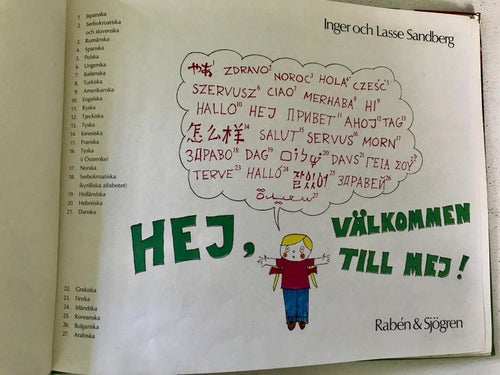 1. Japanska
2. Serbokroatiska
och slovenska
3. Rumänska
4. Spanska
5. Polska
6. Ungerska
7. Italienska
8. Turkiska
9. Amerikanska
10. Engelska
11. Ryska
12. Tjeckiska
13. Tyska
14. Kinesiska
15. Franska
16. Tyska
(i Österrike)
17. Norska
18. Serbokroatiska
(kyrilliska alfabetet)
19. Holländska
20. Hebreiska
21. Danska
22. Grekiska
23. Finska
24. Isländska
25. Koreanska
26. Bulgariska
27. Arabiska
Inger och Lasse Sandberg
やあ1 ZDRAVO2 NOROC3 HOLA4 CZEŚĆ5
SZERVUSZ6 CIAO7 MERHABA8 HI9
HALLO10 HEJ ПРИВЕТ11 AHOJ12 TAG13
怎么样14 SALUT15 SERVUS16 MORN17
ЗДРАВО18 DAG19 20 DAVS21 ΓΕΙΑ ΣΟΥ22
TERVE23 HALLÓ24 25 ЗДРАВЕЙ26
27
HEJ, VÄLKOMMEN
TILL MEJ!
Rabén & Sjögren